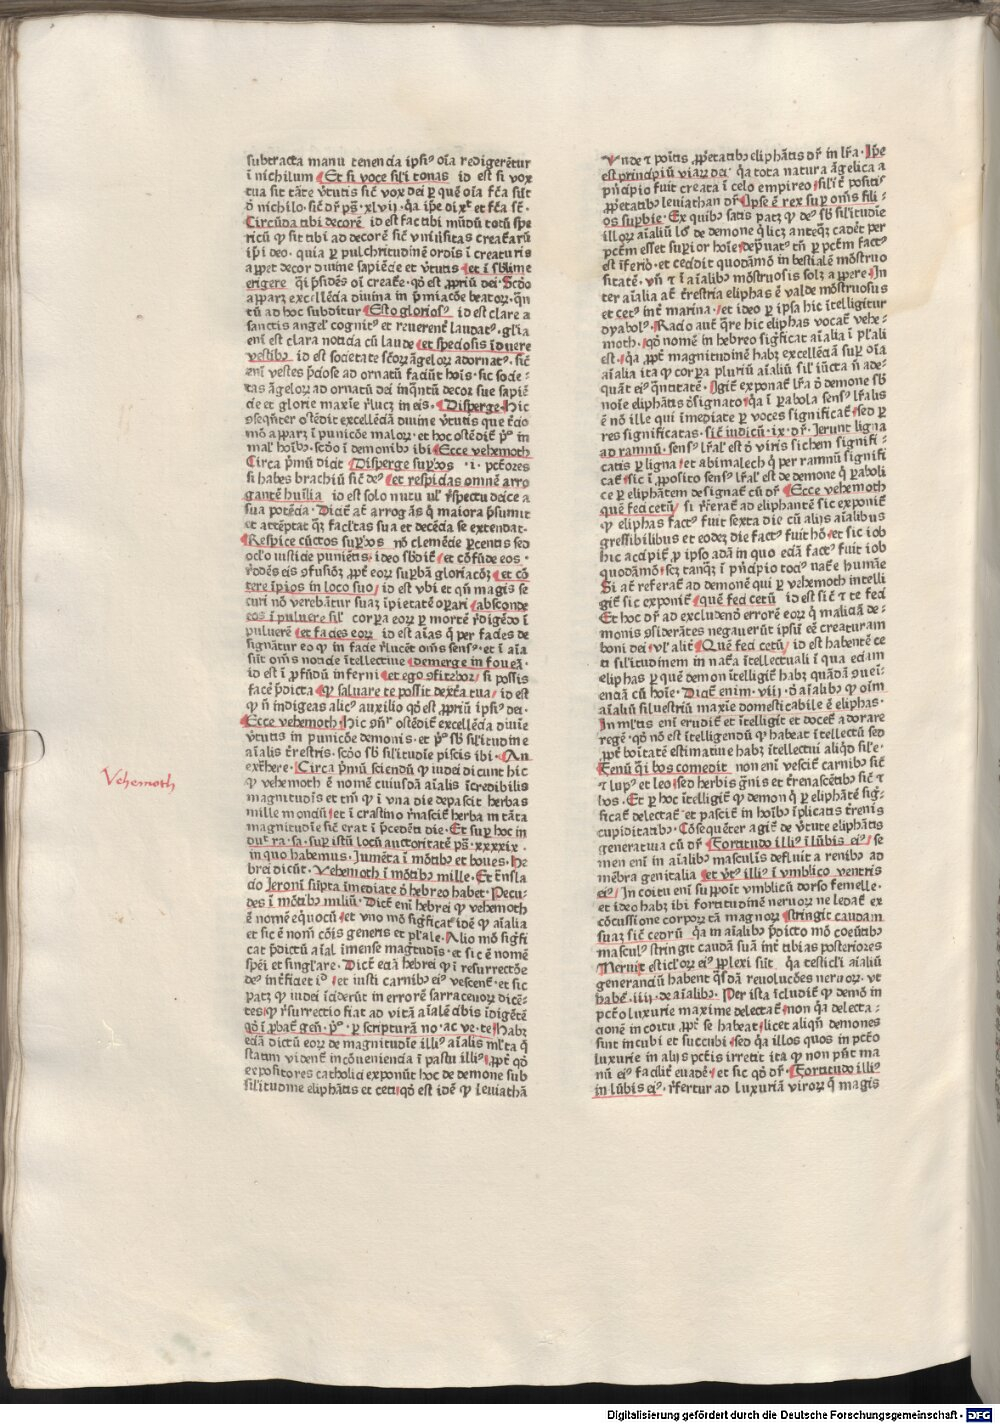 subtracta manu tenencia ipsiꝰ oīa redigerētur
ī nichilum Et si voce sil'i tonas id est si vox
tua sit tāte v̄tutis sic̄ vox dei ꝑ quē oīa fc̄a sūt
ō nichilo. sic̄ dr̄ ps̄ xlvij. q̄a ipe dixᵗ et fc̄a sc̄.
Circūda tibi decorē id est fac tibi mūdū totū spe
ricū ꝙ sit tibi ad decorē sic̄ vniūsitas creatarū
ip̄i deo. quia ꝑ pulchritudinē ordis ī creaturis
appet decor diuine sapiēcie et v̄tutis et ī sb̄lime
erigere qi p̄sidēs oī create. qò est ꝓpriū dei. Scd̄o
apparꝫ excellēcia diuina in p̄miacōe beatoꝝ. q̄n
tū ad hoc subditur Esto gloriosꝰ id est clare a
sanctis angel' cognitꝰ et reuerent̄ laudatꝰ. gl'ia
enī est clara noticia cū laude et speciosis īduere
vestibꝫ id est societate sc̄oꝝ āgeloꝝ adornatꝰ. sic̄
enī vestes p̄ciose ad ornatū faciūt hoīs. sic socie-
tas āgeloꝝ ad ornatū dei inq̄ntū decor sue sapiē
cie et glorie maxīe r̄lucꝫ in eis. Disperge Hic
ꝯseq̄nter ostēdit excellēciā diuine v̄tutis que t̄cio
mō apparꝫ ī punicōe maloꝝ. et hoc ostēdit̄ pͦ in
mal' hoībꝫ. scd̄o ī demonibꝫ ibi Ecce vehemoth
Circa p̄mū dicit Disperge suꝑbos .i. pct̄ores
si habes brachiū sic̄ deꝰ et respiciās omnē arro
gantē hūilia id est solo nutu ul' r̄spectu deice a
sua potēcia. Dicūt̄ at̄ arrogās q̄ maiora p̄sumit
et attēptat q̄ꝫ facl'tas sua et decēcia se extendat.
Respice cūctos suꝑbos nō clemēcie ꝑcentis sed
ocl'o iusticie puniētis. ideo sb̄dit̄ et cōfūde eos.
r̄ddēs eis ꝯfusiōꝫ ꝓpt̄ eoꝝ suꝑbā gloriacōꝫ et cō
tere īpios in loco suo id est vbi et qn̄ magis se
curi nō verebātur suaꝫ īpietatē oꝑari absconde
eos ī puluere sil' corꝑa eoꝝ ꝑ mortē r̄digēdo ī
puluerē et facies eoꝝ id est aīas q̄ ꝑ facies de
signātur eo ꝙ in facie r̄lucēt om̄s sensꝰ. et ī aīa
sūt om̄s noticie itellectiue demerge in foueā.
id est ī ꝓfūdū inferni et ego ꝯfitebor si possis
facē p̄dicta ꝙ saluare te possit dext̄a tua id est
ꝙ n̄ indigeas alicꝰ auxilio qò est ꝓpriū ipsiꝰ dei.
Ecce vehemoth. Hic ꝯn̄r ostēdit̄ excellēcia diuīe
v̄tutis in punicōe demonis. et pͦ sb̄ sil'itudine
aīalis t̄restris. scd̄o sb̄ sil'itudīe piscis ibi. An
ext̄here. Circa p̄mū sciendū ꝙ iudei dicunt hic
ꝙ vehemoth ē nomē cuiusdā aīalis īcredibilis
magnitudīs et tm̄ ꝙ ī vna die depascit herbas
mille mondiū et ī crastino r̄nascit̄ herba in tāta
magnitudīe sic̄ erat ī p̄cedēti die. Et suꝑ hoc in
ducūt ra. sa. suꝑ istū locū auctoritatē ps̄. xxxxix.
in quo habemus. Jumēta ī mōtibꝫ et boues. He
brei dicūt. Vehemoth ī mōtibꝫ mille. Et t̄nsla
cio Jeronī sūpta īmediate ō hebreo habet. Pecu-
des ī mōtibꝫ miliū. Dicūt enī hebrei ꝙ vehemoth
ē nomē equocū et vno mō sigficat̄ idē ꝙ aīalia
et sic ē nom̄ cōis generis et pl'ale. Alio mō sigfi
cat p̄dictū aīal īmense magt̄udīs. et sic ē nomē
spēi et singl'are. Dicūt eciā hebrei ꝙ ī resurrectōe
deꝰ int̄ficiet iᵈ et iusti carnibꝫ eiꝰ vescent̄. et sic
patꝫ ꝙ iudei īciderūt in errorē sarracenoꝝ dicē-
tes ꝙ r̄surrectio fiat ad vitā aīalē cibis īdigētē
qò ī ꝓbat̄ gen̄. pͦ. ꝑ scripturā no. ac ve. te Habꝫ
eciā dictū eoꝝ de magnitudīe illiꝰ aīalis ml'ta q̄
statim vident̄ incōueniencia ī pastu illiꝰ. ꝓpt̄ qò
expositores catholici exponūt hoc de demone sub
sil'itudine eliphātis et ceti qò est idē ꝙ leuiathā
Vnde t̄ pōitis ꝓp̄etatibꝫ eliphātis dr̄ in lr̄a. Ipe
est principiū viaꝝ dei q̄a tota natura āgelica a
p̄ncipio fuit creata ī celo empireo sil'it̄ positiꝰ
ꝓp̄etatibꝫ leviathan dr̄ Ipse ē rex suꝑ om̄s fili-
os suꝑbie. Ex quibꝫ satis patꝫ ꝙ deꝰ sb̄ sil'itudīe
illoꝝ aīaliū lōs de demone q̄licꝫ anteq̄ꝫ cadēt ꝑer
pct̄m esset suꝑior hoīe dep̄uatꝰ tn̄ ꝑ pct̄m factꝰ
est īferiō. et cecidit quodāmō in bestialē mōstruo
sitatē. vn̄ t̄ ī aīalibꝫ mōstruosis solꝫ apꝑere In
ter aīalia at̄ t̄restria eliphas ē valde mōstruosus
et cetꝰ int̄ marina. et ideo ꝑ ipsa hic ītelligitur
dyabolꝰ. Racio aut̄ q̄re hic eliphas vocat̄ vehe-
moth. qò nomē in hebreo sigficat aīalia ī pl'ali
est. q̄a ꝓpt̄ magnitudinē habꝫ excellēciā suꝑ oīa
aīalia ita ꝙ corꝑa pluriū aīaliū sil' iūcta n̄ ade-
quāt eiꝰ q̄ntitatē. Igit̄ exponat̄ lr̄a ō demone sb̄
noīe eliphātis ōsignato q̄a ī ꝑabola sensꝰ lr̄alis
ē nō ille qui īmediate ꝑ voces significat̄ sed ꝑ
res significatas. sic̄ indicū. ix. dr̄. Jerunt ligna
ad ramnū. sensꝰ lr̄al' est ō viris sichem signifi-
catis ꝑ ligna et abimalech q̄ ꝑ ramnū signifi
cat̄ sic ī ꝓposito sensꝰ lr̄al' est de demone q̄ ꝑaboli
ce ꝑ eliphātem designat̄ cū dr̄ Ecce vehemoth
quē feci cetū si r̄ferat̄ ad eliphantē sic exponit̄
ꝙ eliphas factꝰ fuit sexta die cū alijs aīalibus
gressibilibus et eodeꝫ die factꝰ fuit hō et sic iob
hic accipit̄ ꝑ ipso adā in quo eciā factꝰ fuit iob
quodāmō scꝫ tanq̄ꝫ ī p̄ncipio tociꝰ nat̄e humāe
Si at̄ referat̄ ad demonē qui ꝑ vehemoth intelli
git̄ sic exponit̄ quē feci cetū id est sic̄ t̄ te feci
Et hoc dr̄ ad excludenō errorē eoꝝ q̄ maliciā de-
monis ꝯsiderātes negauerūt ipsū eē creaturam
boni dei vl' alit̄ Quē feci cetū id est habentē ce
ti sil'itudinem in nat̄a ītellectuali ī qua eciam
eliphas ꝑ quē demon ītelligit̄ habꝫ quādā ꝯueī-
enciā cū hoīe. Dicūt̄ enim. viij. ō aīalibꝫ ꝙ oīm
aīaliū siluestriū maxīe domesticabile ē eliphas.
In ml'tis enī erudit̄ et itelligit et docet̄ adorare
regē. qò nō est itelligendū ꝙ habeat ītellectū sed
ꝓpt̄ boītatē estimatiue habꝫ ītellectui aliq̇d sil'e.
Fenū q̄i bos comedit non enī vescit̄ carnibꝫ sic̄
t̄ lupꝰ et leo sed herbis ḡnis et t̄renascētibꝫ sic̄ t̄
bos. Et ꝑ hoc itelligit̄ ꝙ demon q̄ ꝑ eliphātē sigf-
ficat̄ delectat̄ et pascit̄ in hoībꝫ īplicatis t̄renis
cupiditatibꝫ. Cōsequēter agit̄ de v̄tute eliphātis
generatiua cū dr̄ Fortitudo illiꝰ ī lūbis eiꝰ se
men enī in aīalibꝫ masculis defluit a renibꝫ ad
mēbra genitalia et v̄tꝰ illiꝰ ī vmblico ventris
eiꝰ In coitu enī suppōit vmblicū dorso femelle.
et ideo habꝫ ibi fortitudinē neruoꝝ ne ledat̄ ex
cōcussione corpoꝝ tā magnoꝝ stringit caudam
suaꝫ sic̄ cedrū q̄a in aīalibꝫ p̄dicto mō coeūtibꝫ
masculꝰ stringit caudā suā int̄ tibias posteriores
Nerui testicl'oꝝ eiꝰ ꝑplexi sūt q̄a testicl'i aīaliū
generanciū habent q̄sdā reuolucōes neruoꝝ. vt
habet̄. iiij. de aīalibꝫ. Per ista īcludit̄ ꝙ demō in
pct̄o luxurie maxime delectat̄ non q̄a delecta-
cionē in coitu. ꝓpt̄ se habeat licet aliqn̄ demones
sunt incubi et succubi sed q̄a illos quos in pct̄o
luxurie in alijs pct̄is irretit ita ꝙ non pn̄t ma
nū eiꝰ facilit̄ euadē. et sic qò dr̄. Fortitudo illiꝰ
in lūbis eiꝰ. r̄fertur ad luxuriā viroꝝ q̄ magis
Vehemoth
Digitalisierung gefördert durch die Deutsche Forschungsgemeinschaft - DFG